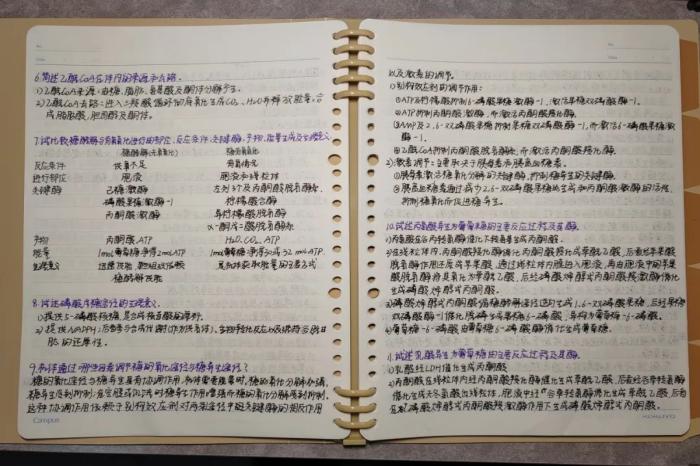 6.简述乙酰CoA在体内的来源和去路.
1)乙酰CoA来源:由糖、脂肪、氨基酸及酮体分解产生.
2)乙酰CoA去路:进入三羧酸循环彻底氧化生成CO₂、H₂O并释放能量、合
成脂肪酸,胆固醇及酮体.
7.试比较糖酵解与有氧氧化进行的部位、反应条件、关键酶、产物、能量生成及生理意义.
糖酵解(无氧氧化) 糖有氧氧化
反应条件 供氧不足 有氧情况
进行部位 胞液 胞液和线粒体
关键酶 己糖激酶 左列3个及丙酮酸脱氢酶系、
磷酸果糖激酶-1 柠檬酸合酶
丙酮酸激酶 异柠檬酸脱氢酶
α-酮戊二酸脱氢酶系
产物 丙酮酸,ATP H₂O,CO₂,ATP
能量 1mol葡萄糖净得2molATP 1mol葡萄糖净得30或32molATP
生理意义
糖酵解供能 是机体获取能量的主要方式
8.试述磷酸戊糖途径的生理意义.
1)提供5-磷酸核糖,是合成核苷酸的原料.
2)提供NADPH,后者参与合成代谢(作为供氢体)、生物转化反应以及维持谷胱甘
肽的还原性.
9.机体通过哪些因素调节糖的氧化途径与糖异生途径?
糖的氧化途径与糖异生具有协调作用,机体需要能量时,糖的氧化分解加强,
糖异生受到抑制;在空腹或饥饿时糖异生作用增强而糖的氧化分解受到抑制.
这种协调作用依赖于别构效应剂对两条途径中的关键酶的相反作用
以及激素的调节.
1)别构效应剂的调节作用:
①ATP及柠檬酸抑制6-磷酸果糖激酶-1,激活果糖双磷酸酶-1.
②ATP抑制丙酮酸激酶,而激活丙酮酸羧化酶.
③AMP及2,6-双磷酸果糖抑制果糖双磷酸酶-1,而激活6-磷酸果糖激
酶-1.
④乙酰CoA抑制丙酮酸脱氢酶系,而激活丙酮酸羧化酶.
2)激素调节:主要取决于胰岛素与胰高血糖素.
①胰岛素激活糖氧化分解的关键酶,抑制糖异生的关键酶.
②胰高血糖素通过减少2,6-双磷酸果糖的生成和丙酮酸激酶的活性,
抑制糖氧化而促进糖异生.
10.试述丙氨酸异生为葡萄糖的主要反应过程及其酶.
1)丙氨酸在谷丙转氨酶催化下转氨基生成丙酮酸.
2)在线粒体内,丙酮酸羧化酶催化丙酮酸羧化成草酰乙酸,后者经苹果酸
脱氢酶作用还原成苹果酸,通过线粒体内膜进入胞液,再由胞液中的苹果
酸脱氢酶将其氧化为草酰乙酸,后经磷酸烯醇式丙酮酸羧激酶催化
生成磷酸烯醇式丙酮酸.
3)磷酸烯醇式丙酮酸循糖酵解逆行途径生成1,6-双磷酸果糖,后经果糖
双磷酸酶-1催化脱磷生成果糖-6-磷酸,异构为葡萄糖-6-磷酸.
4)葡萄糖-6-磷酸由葡萄糖-6-磷酸酶催化生成葡萄糖.
11.试述乳酸异生为葡萄糖的主要反应过程及其酶.
1)乳酸经LDH催化生成丙酮酸
2)丙酮酸在线粒体内经丙酮酸羧化酶催化生成草酰乙酸,后者经谷草转氨酶
催化生成天冬氨酸出线粒体,胞液中经谷草转氨酶催化生成草酰乙酸,后者
在磷酸烯醇式丙酮酸羧激酶作用下生成磷酸烯醇式丙酮酸.
Campus
KOKUYO